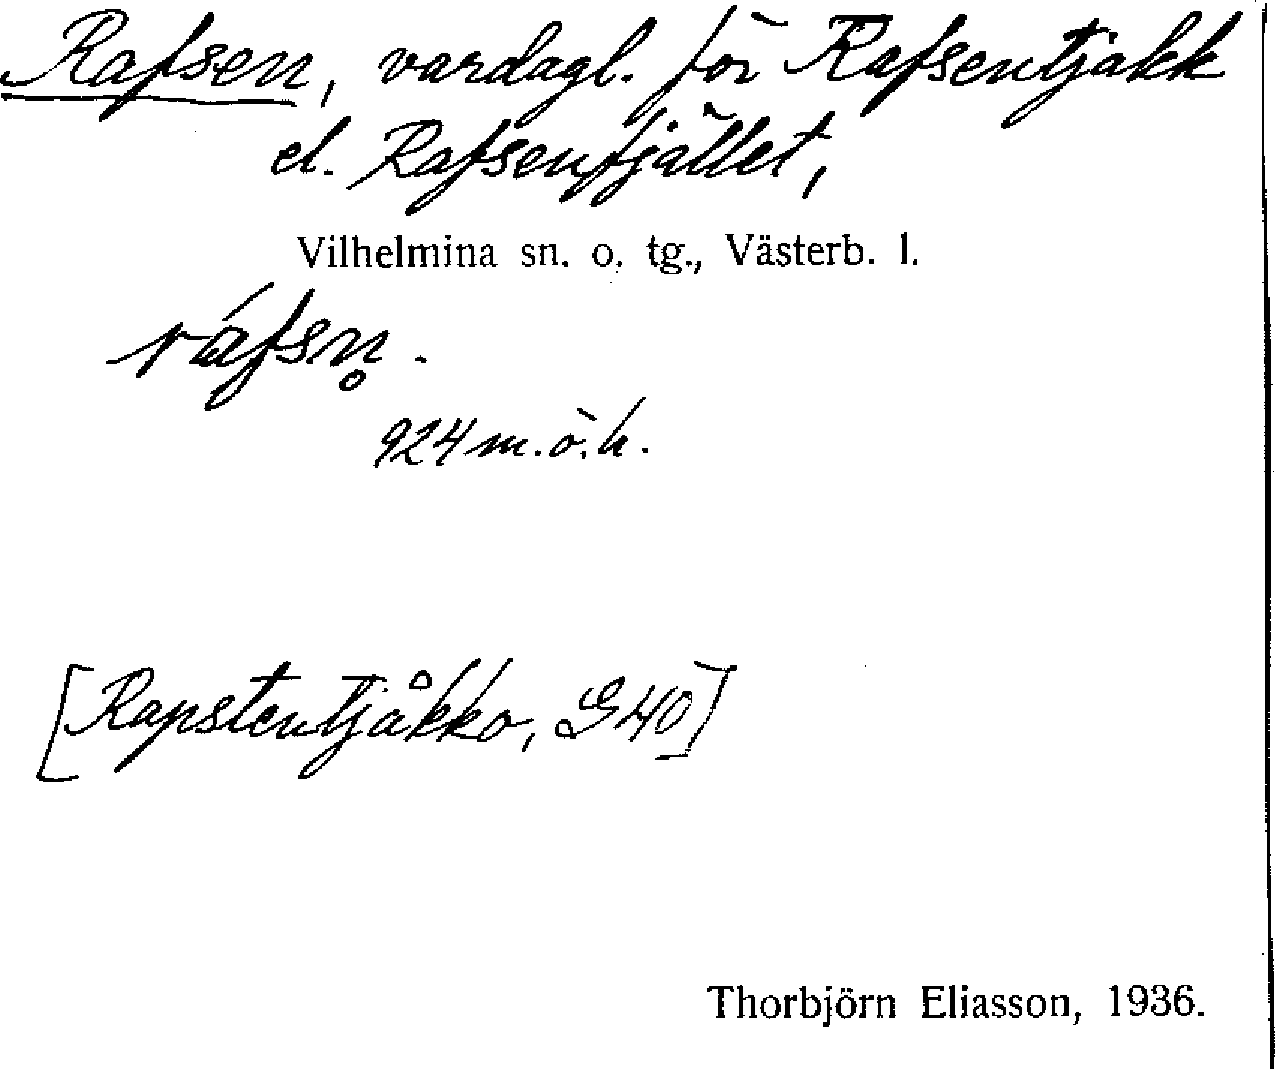 Rafsen, vardagl. för Rafsentjakk
el. Rafsenfjället,
Vilhelmina sn. o. tg., Västerb. l.
ráfsn̥.
924 m.ö.h.
[Rapstentjåkko, G40]
Thorbjörn Eliasson, 1936.